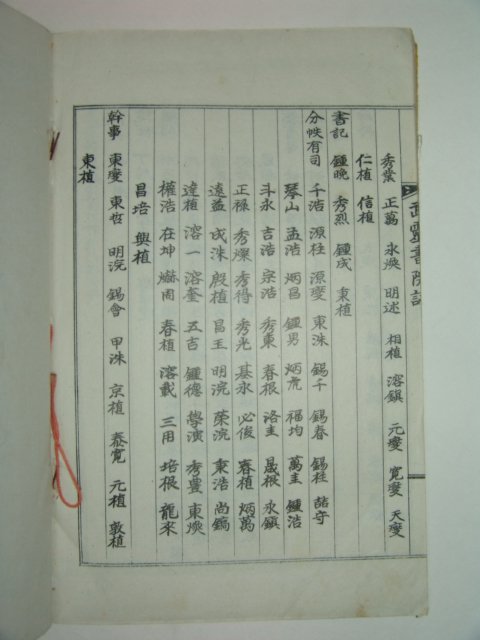 秀業 正萬 永煥 明述 相植 溶鎭 元燮 寬燮 天燮
仁植 信植
書記 鍾晩 秀烈 鍾成 東植
分帙有司 千浩 源柱 源燮 東洙 錫千 錫春 錫柱 誥守
琴山 孟浩 炳昌 鍾男 炳虎 福均 萬圭 鍾浩
斗永 吉浩 宗浩 秀東 春根 洛圭 晟根 永鎭
正祿 秀燦 秀得 秀光 基永 必後 春植 炳萬
遠益 成洙 殷植 昌玉 明浣 榮浣 東浩 尚鎬
達植 溶一 溶奎 五吉 鍾德 學演 秀豊 東煥
權浩 在坤 春植 溶載 三用 培根 龍來
昌培 興植
幹事 東燮 東哲 明浣 錫會 甲洙 京植 泰寬 元植 敦植
東植